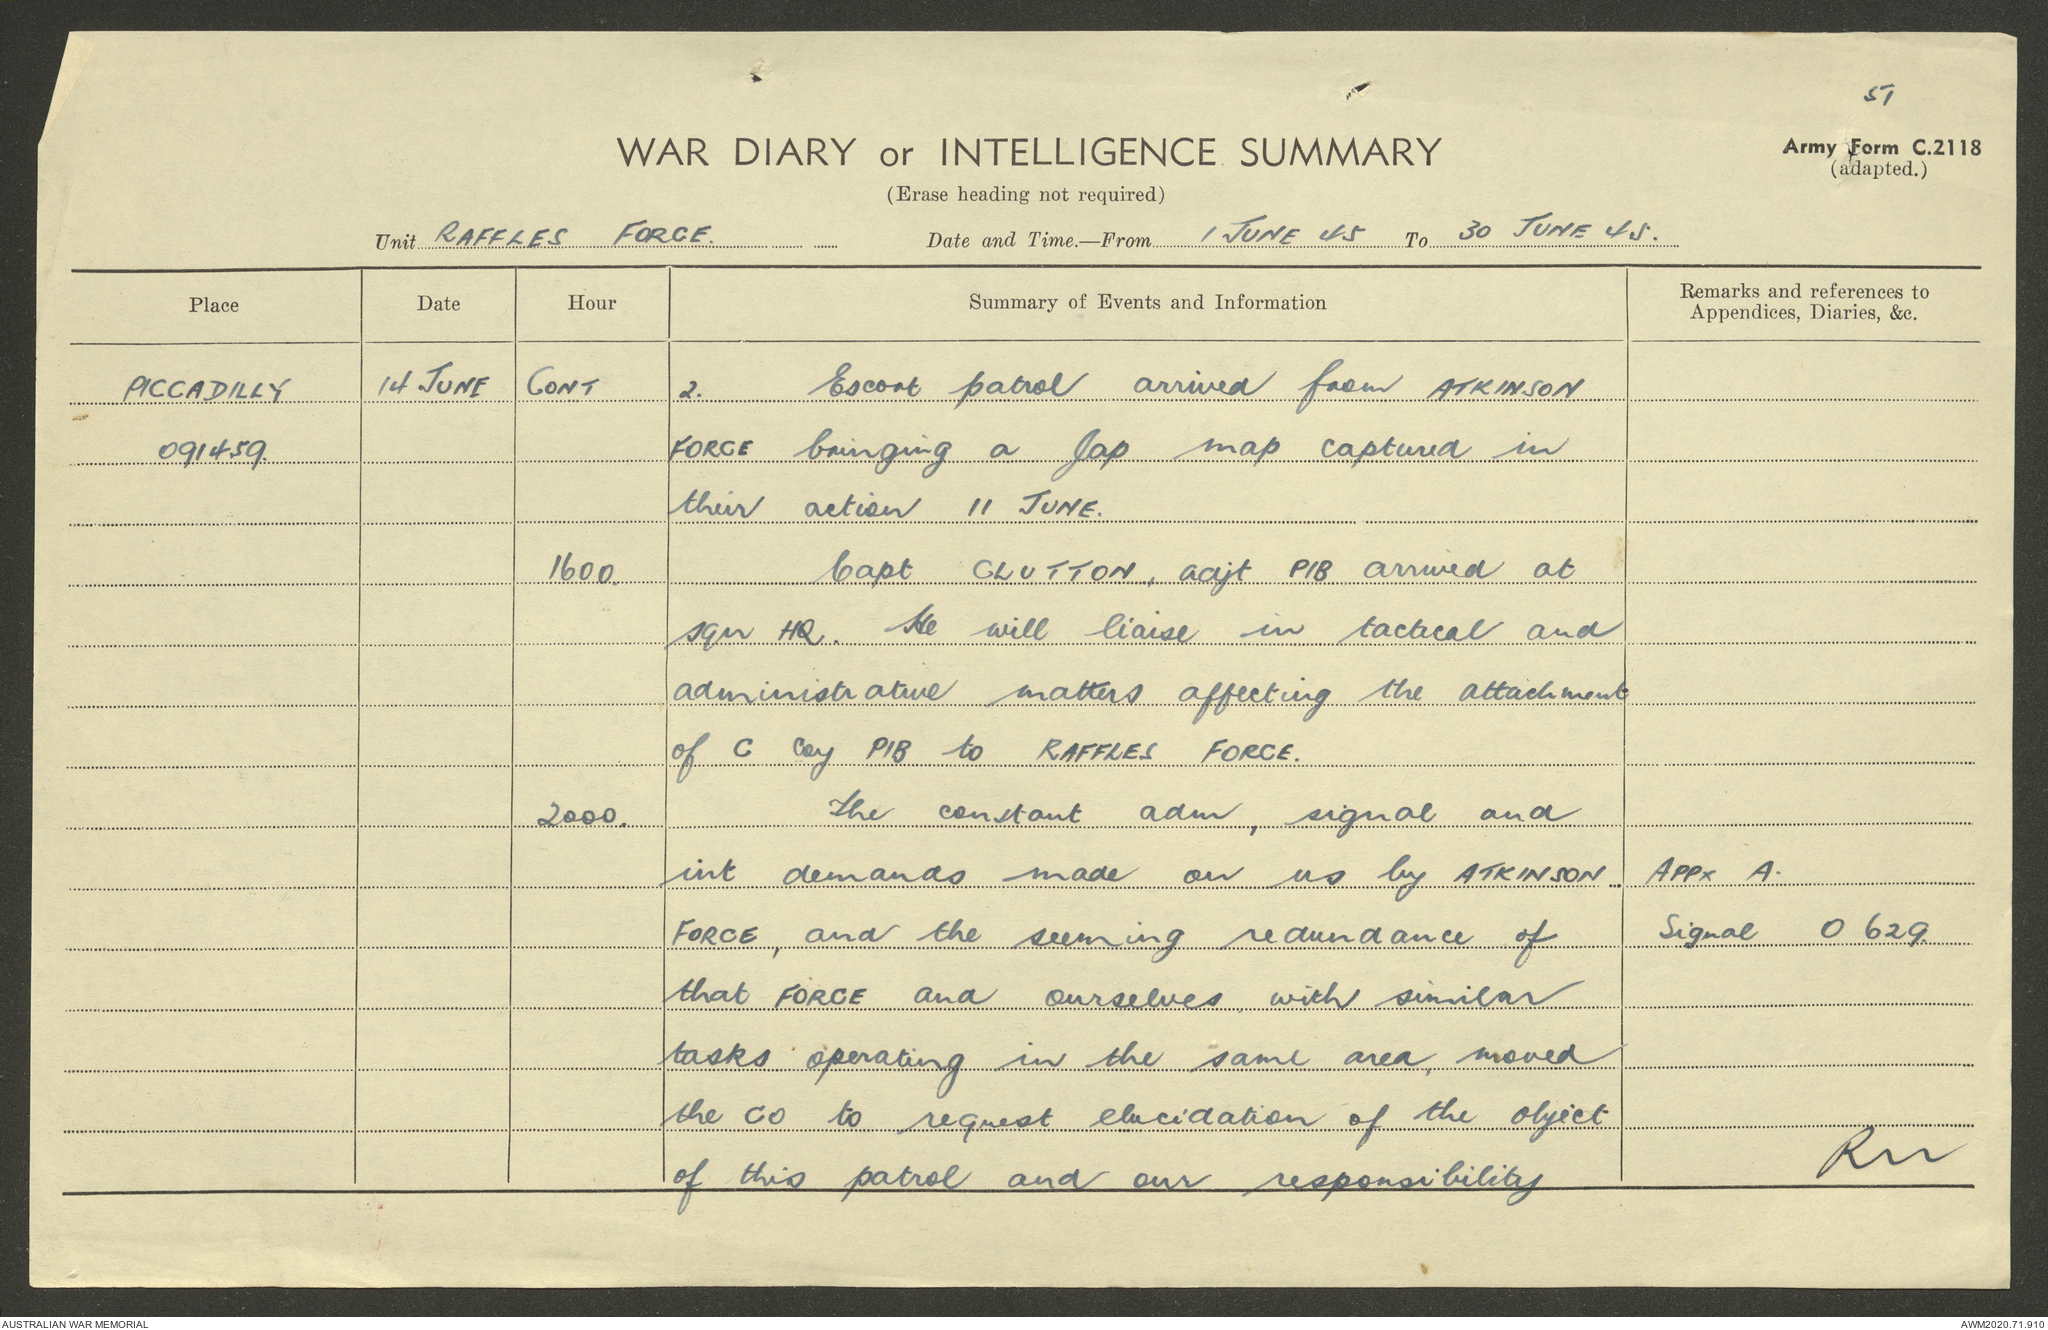 51
WAR DIARY or INTELLIGENCE SUMMARY
Army Form C.2118
(adapted.)
(Erase heading not required)
Unit RAFFLES FORCE. Date and Time.—From 1 JUNE 45 To 30 JUNE 45.
Place Date Hour Summary of Events and Information Remarks and references to
Appendices, Diaries, &c.
PICCADILLY 14 JUNE CONT 2. Escort patrol arrived from ATKINSON
091459. FORCE bringing a Jap map captured in
their action 11 JUNE.
1600. Capt CLUTTON, adjt PIB arrived at
sqn HQ. He will liaise in tactical and
administrative matters affecting the attachment
of C Coy PIB to RAFFLES FORCE.
2000. The constant adm, signal and
int demands made on us by ATKINSON APPx A.
FORCE, and the seeming redundance of Signal O 629.
that FORCE and ourselves with similar
tasks operating in the same area, moved
the CO to request elucidation of the object
of this patrol and our responsibility
AUSTRALIAN WAR MEMORIAL AWM2020.71.910